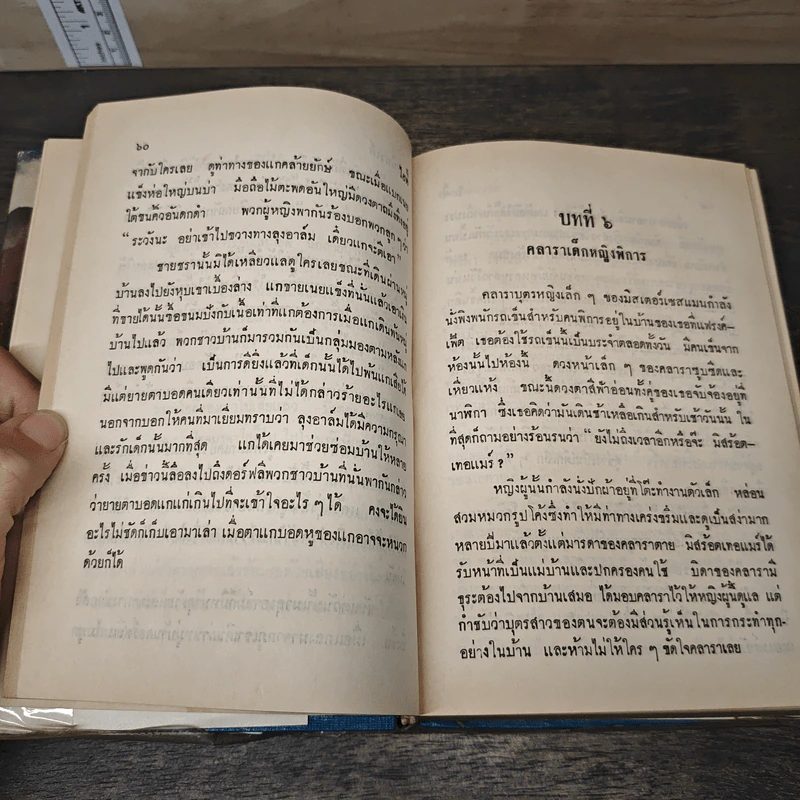 ๖๐
จากับใครเลย ดูท่าทางของแกคล้ายยักษ์ ขณะเมื่อแบก
แข็งห่อใหญ่บนบ่า มือถือไม้ตะพดอันใหญ่มีดวงตาถมึงทึงอยู่
ใต้ขนคิ้วอันดกดำ พวกผู้หญิงพากันร้องบอกพวกลูก ๆ ว่า
“ระวังนะ อย่าเข้าไปขวางทางลุงอาล์ม เดี๋ยวแกจะตีเอา”
ชายชรานั้นมิได้เหลียวแลดูใครเลยขณะที่เดินผ่านหมู่
บ้านลงไปยังหุบเขาเบื้องล่าง แกขายเนยแข็งที่นั่นแล้วเอาเงิน
ที่ขายได้นั้นซื้อขนมปังกับเนื้อเท่าที่แกต้องการเมื่อแกเดินพ้นหมู่
บ้านไปแล้ว พวกชาวบ้านก็มารวมกันเป็นกลุ่มมองตามหลังแก
ไปและพูดกันว่า เป็นการดียิ่งแล้วที่เด็กนั้นได้ไปพ้นแกเสียได้
มีแต่ยายตาบอดคนเดียวเท่านั้นที่ไม่ได้กล่าวร้ายอะไรแกเลย
นอกจากบอกให้คนที่มาเยี่ยมทราบว่า ลุงอาล์มได้มีความกรุณา
และรักเด็กนั้นมากที่สุด แกได้เคยมาช่วยซ่อมบ้านให้หลาย
ครั้ง เมื่อข่าวนี้ลือลงไปถึงดอร์ฟลีพวกชาวบ้านที่นั่นพากันกล่าว
ว่ายายตาบอดแกแก่เกินไปที่จะเข้าใจอะไร ๆ ได้ คงจะได้ยิน
อะไรไม่ชัดก็เก็บเอามาเล่า เมื่อตาแกบอดหูของแกอาจจะหนวก
ด้วยก็ได้
บทที่ ๖
คลาราเด็กหญิงพิการ
คลาราบุตรหญิงเล็ก ๆ ของมิสเตอร์เซสแมนกำลัง
นั่งพิงพนักรถเข็นสำหรับคนพิการอยู่ในบ้านของเธอที่แฟรงค์–
เฟิต เธอต้องใช้รถเข็นนี้เป็นประจำตลอดทั้งวัน มีคนเข็นจาก
ห้องนั้นไปห้องนี้ ดวงหน้าเล็ก ๆ ของคลาราซูบซีดและ
เหี่ยวแห้ง ขณะนี้ดวงตาสีฟ้าอ่อนทั้งคู่ของเธอจับจ้องอยู่ที่
นาฬิกา ซึ่งเธอคิดว่ามันเดินช้าเหลือเกินสำหรับเช้าวันนั้น ใน
ที่สุดก็ถามอย่างร้อนรนว่า “ยังไม่ถึงเวลาอีกหรือจ๊ะ มิสร้อต–
เทอแมร์ ?”
หญิงผู้นั้นกำลังนั่งปักผ้าอยู่ที่โต๊ะทำงานตัวเล็ก หล่อน
สวมหมวกรูปโค้งซึ่งทำให้มีท่าทางเคร่งขรึมและดูเป็นสง่ามาก
หลายปีมาแล้วตั้งแต่มารดาของคลาราตาย มิสร้อตเทอแมร์ได้
รับหน้าที่เป็นแม่บ้านและปกครองคนใช้ บิดาของคลารามี
ธุระต้องไปจากบ้านเสมอ ได้มอบคลาราไว้ให้หญิงผู้นี้ดูแล แต่
กำชับว่าบุตรสาวของตนจะต้องมีส่วนรู้เห็นในการกระทำทุก–
อย่างในบ้าน และห้ามไม่ให้ใคร ๆ ขัดใจคลาราเลย